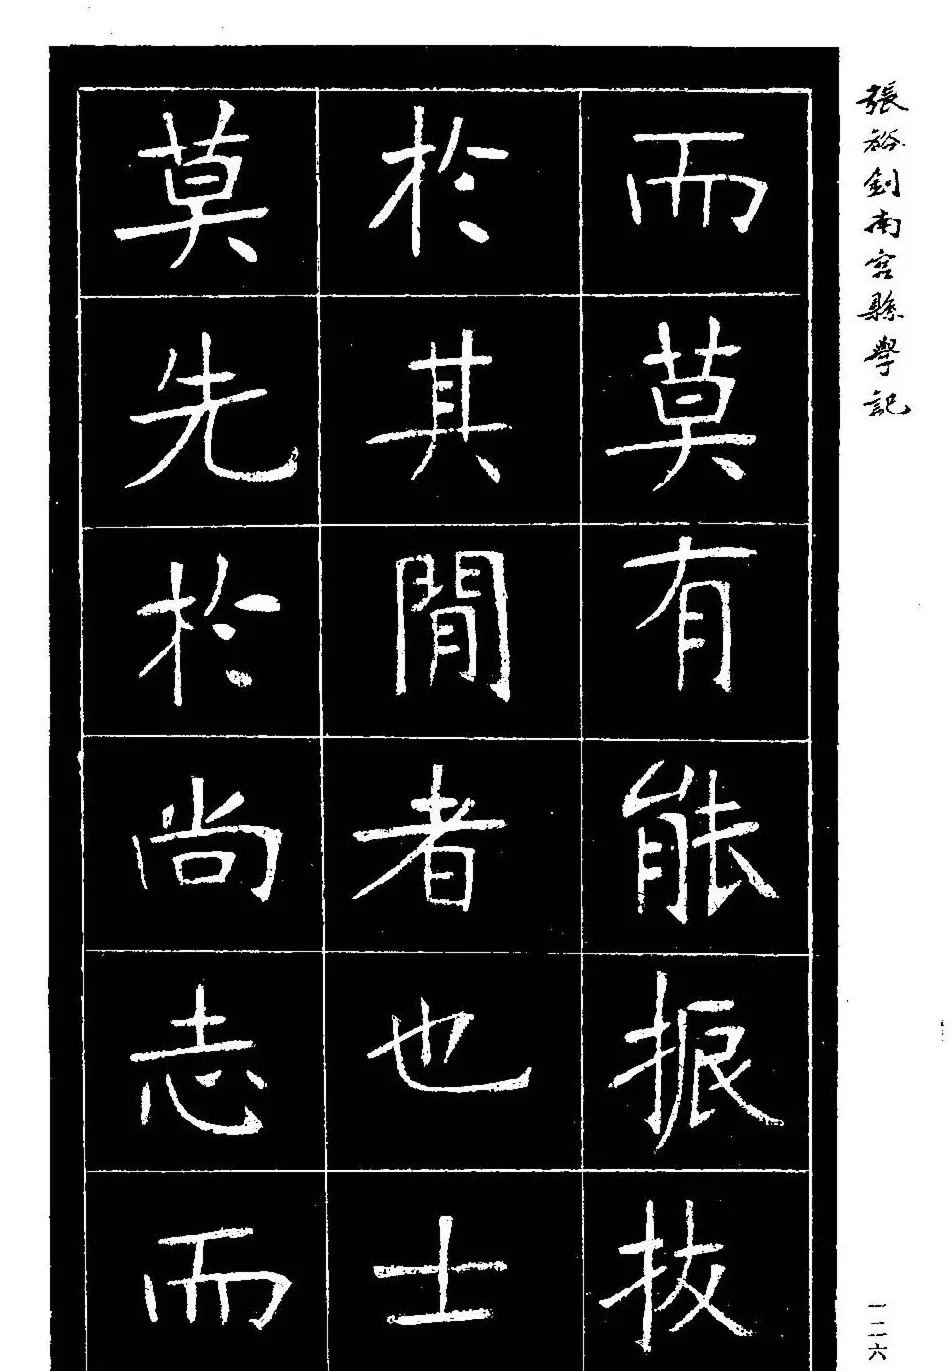 張裕釗南宮縣學記
而莫有能振拔
於其閒者也士
莫先於尚志而
一二六